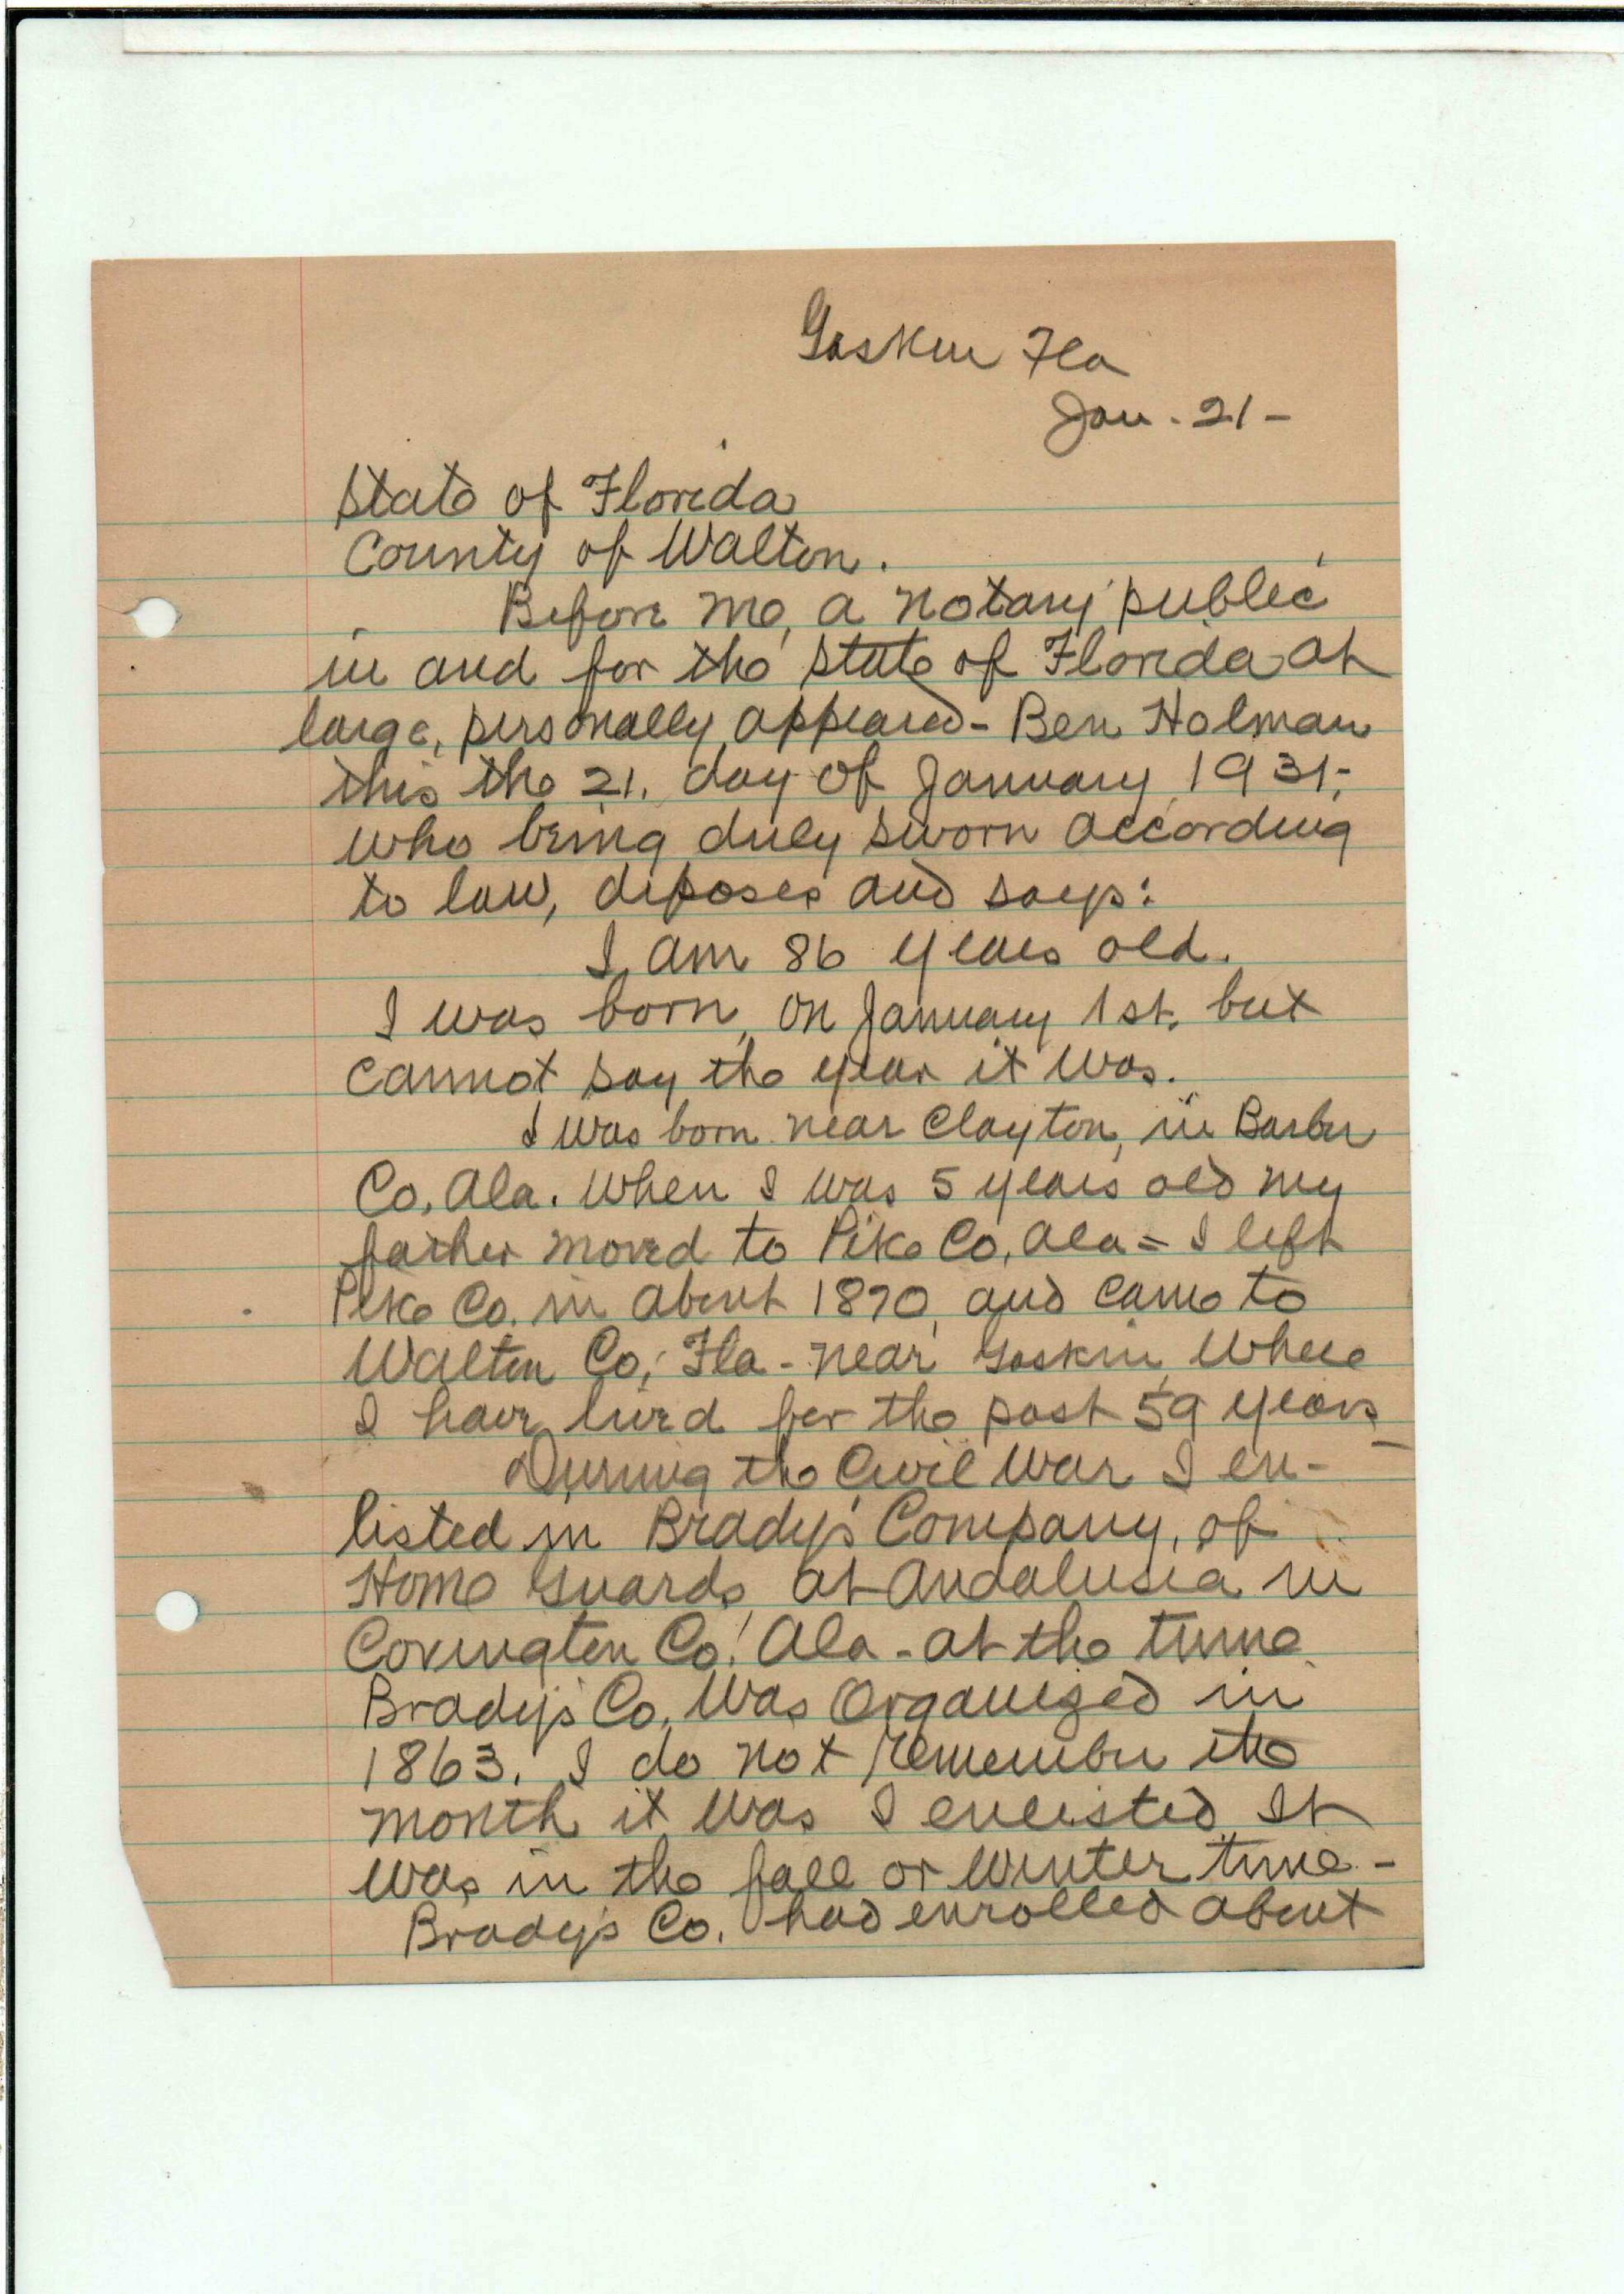 Gaskin Fla
Jan. 21-
State of Florida
County of Walton.
Before me, a notary public
in and for the State of Florida at
large, personally appeared - Ben Holman
this the 21. day of January 1931,-
who being duly sworn according
to law, deposes and says:
I am 86 years old.
I was born, on January 1st, but
cannot say the year it was.
I was born near Clayton, in Barber
Co, Ala. When I was 5 years old my
father moved to Pike Co, Ala - I left
Pike Co. in about 1870, and came to
Walton Co, Fla - near Gaskin, where
I have lived for the past 59 years -
During the Civil War I en-
listed in Brady's Company, of
Home Guards, at Andalusia in
Covington Co, Ala - at the time
Brady's Co, was organized in
1863. I do not remember the
month it was I enlisted. It
was in the fall or winter time -
Brady's Co. had enrolled about